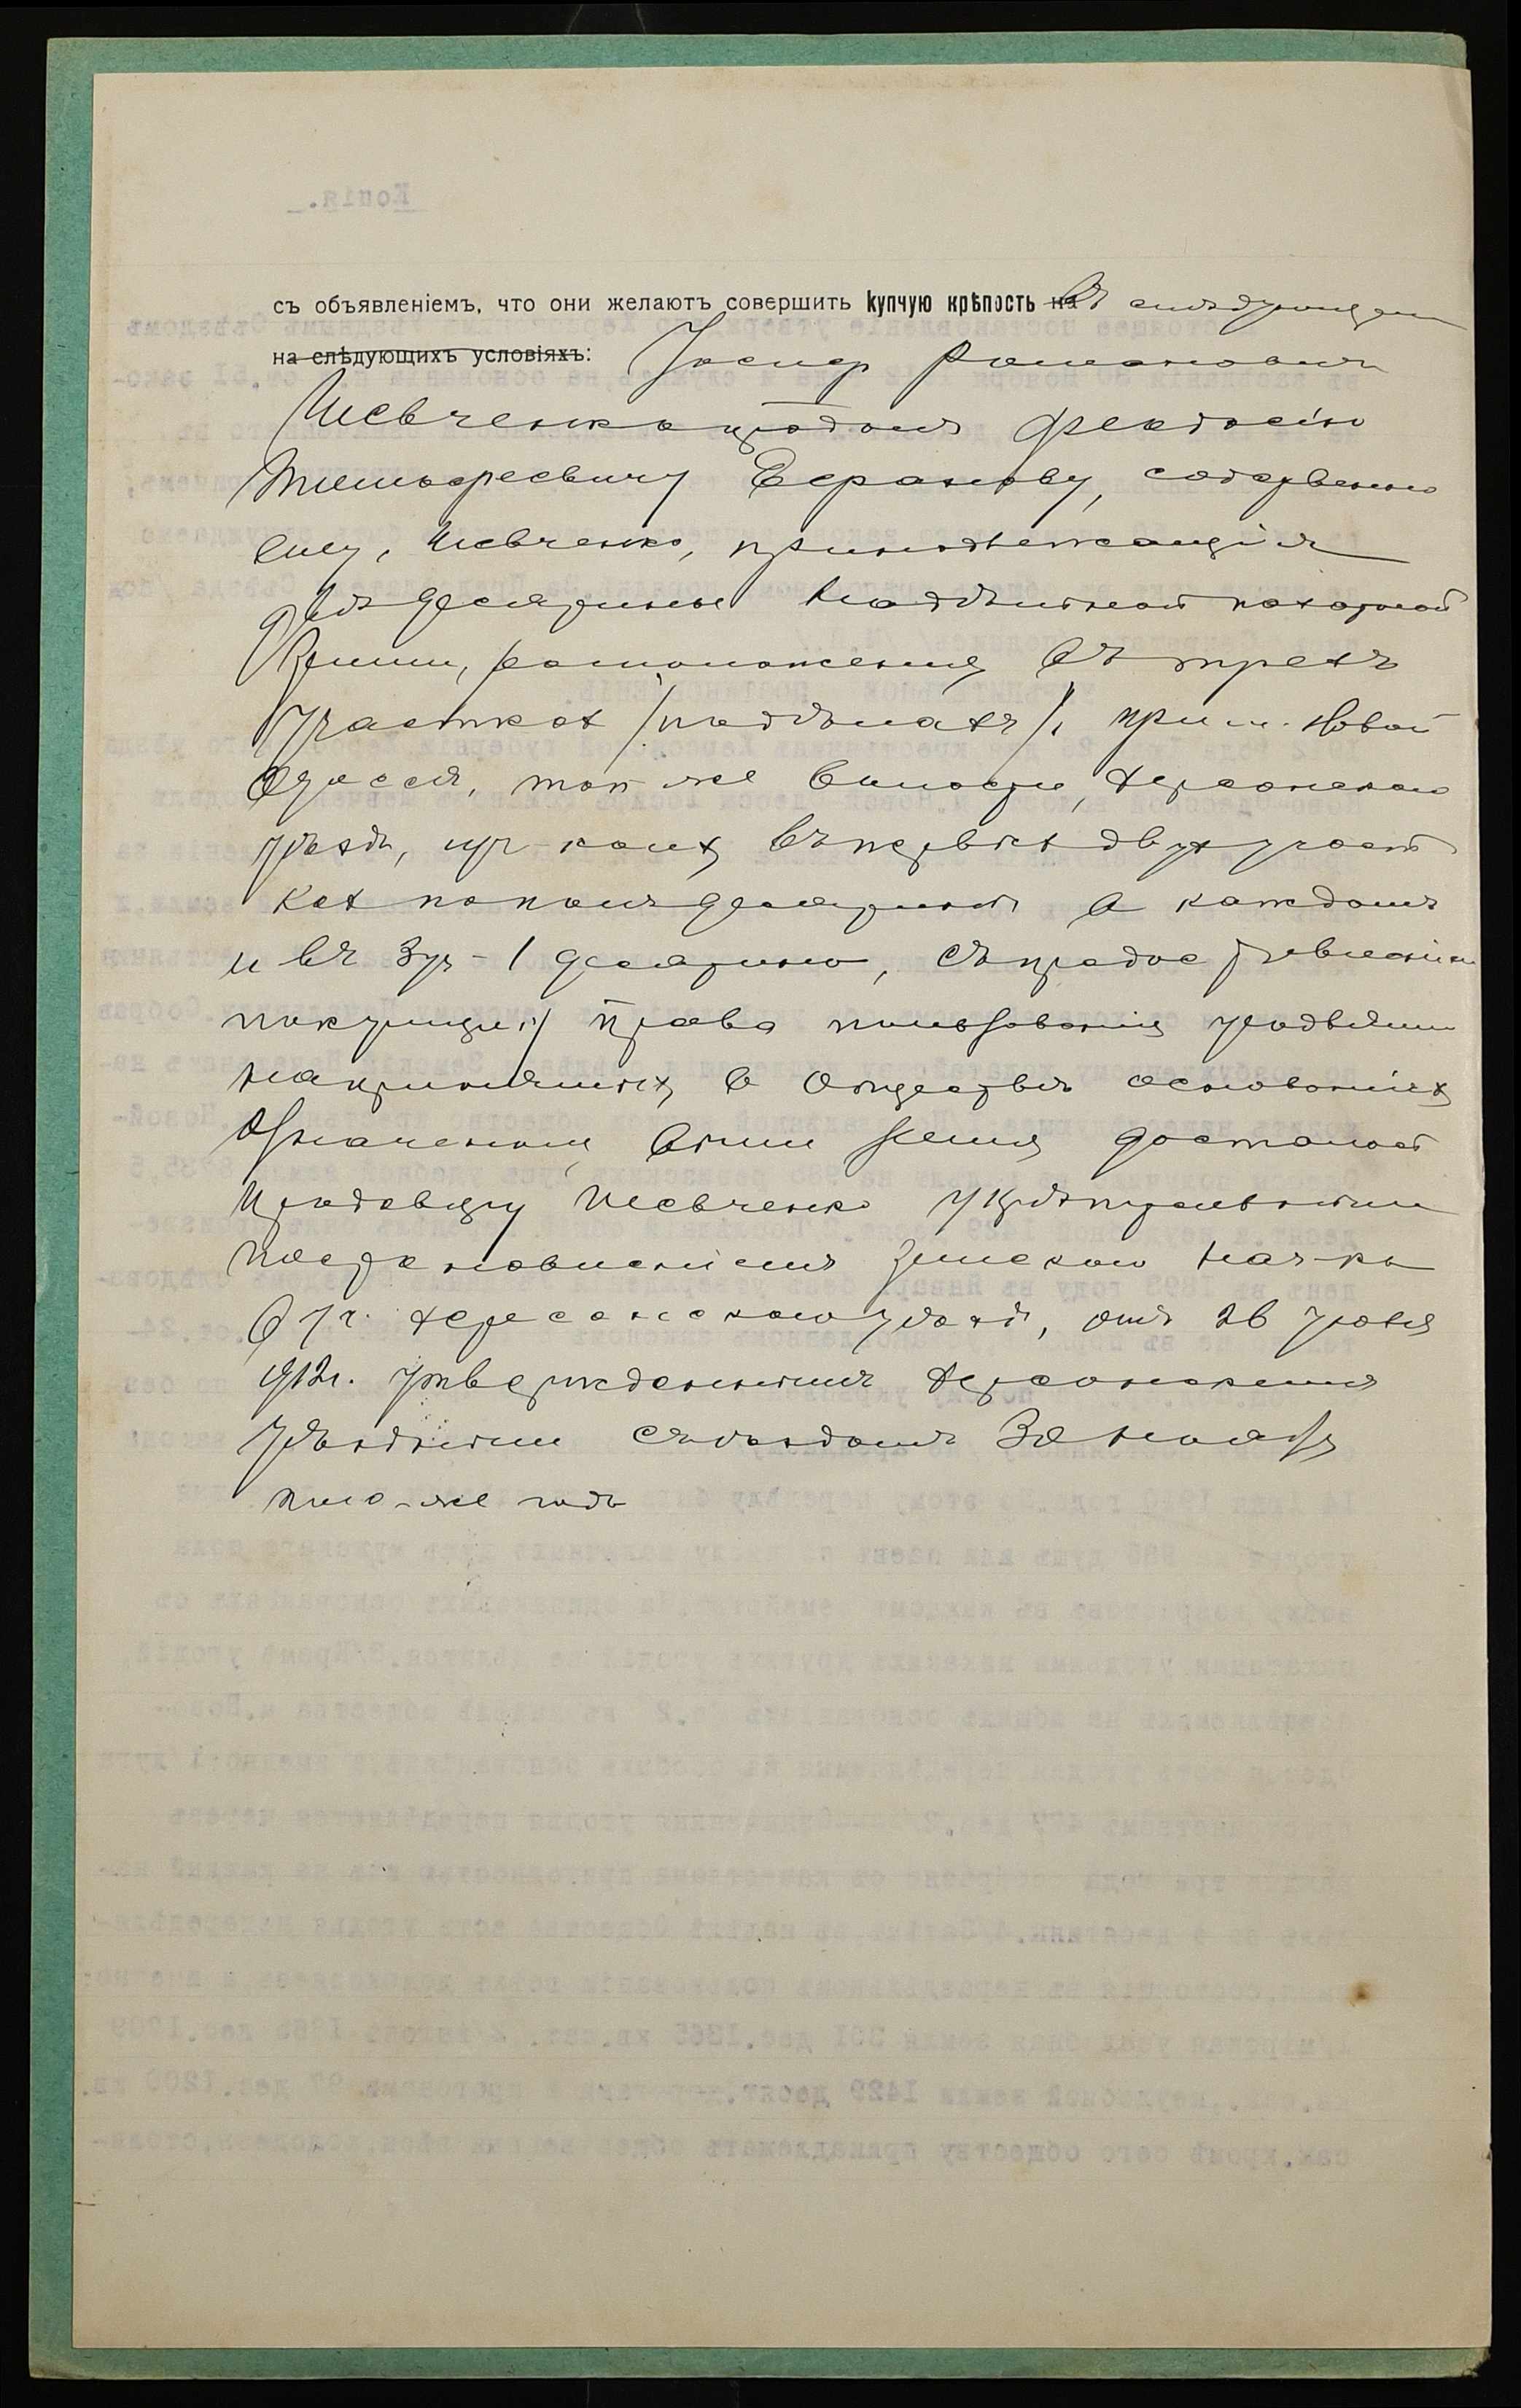 съ объявленіемъ, что они желаютъ совершить купчую крѣпость на въ слѣдующем
на слѣдующихъ условіяхъ: Іосиф Романович
Шевченко продалъ Феодосію
Тимофеевичу Ефанову, собственно
ему, Шевченко, принадлежащія
двѣ десятины надѣльной пахатной
земли, расположенныя въ трехъ
участках /надѣлахъ/, при м. Новой
Одессѣ, той же волости, Херсонскаго
уѣзда, из коих въ первых двух участ
ках по полъ десятины в каждомъ
и въ 3мъ - 1 десятина, съ предоставленіем
покупщику права пользованія угодьями
на принятых в Обществѣ основаніях
Означенная земля досталась
продавцу Шевченко укрѣпительным
постановленіемъ Земскаго Нач-ка
уч. Херсонскаго уѣзда, отъ 26 Іюня
912 г. утвержденнымъ Херсонскимъ
Уѣзднымъ съѣздомъ 30 Ноября
того-же года